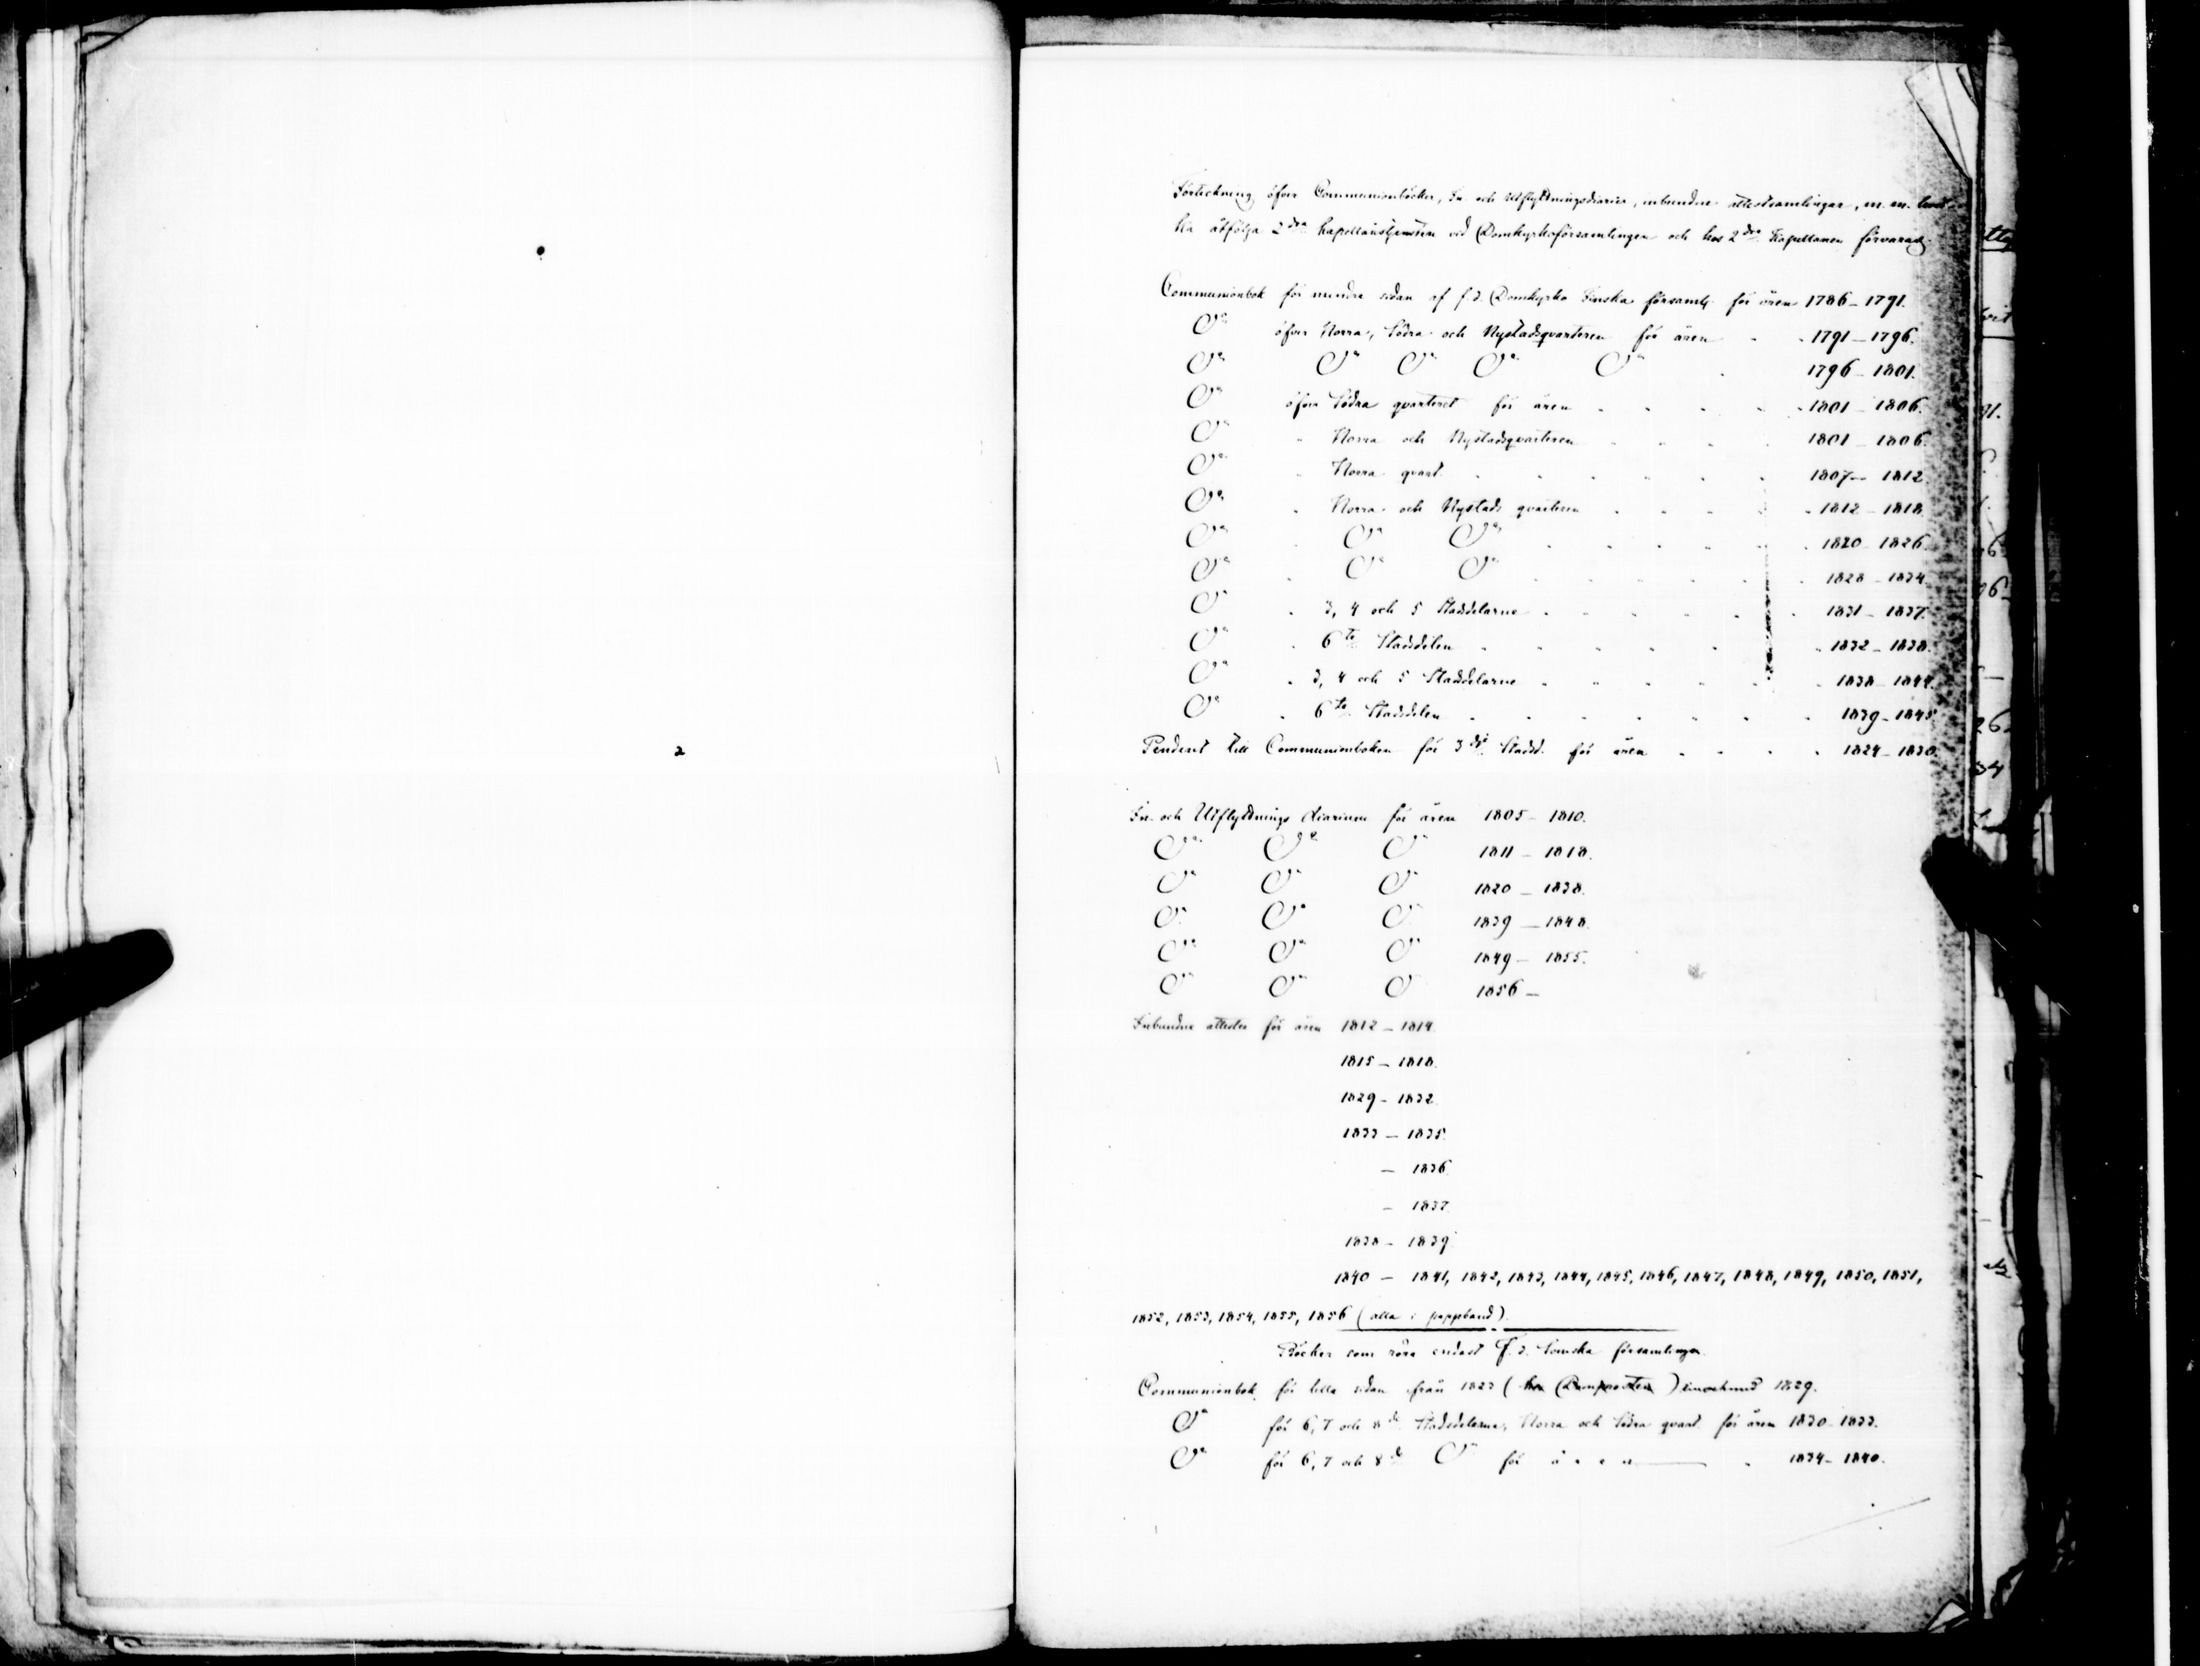 Förteckning öfver Communionböcker, In- och Utflyttningsdiarier, inbundne attestsamlingar, m. m. hvil-
ka åtfölja 2dra kapellanstjensten vid Domkyrkoförsamlingen och hos 2dre Kapellanen förvaras.
Communionbok för mindre sidan af f. d. Domkyrko Finska församl. för åren 1786–1791.
Do öfver Norra-, Södra- och Nystadsqvarteren för åren 1791–1796.
Do Do Do Do Do 1796–1801.
Do öfver Södra qvarteret för åren 1801–1806.
Do " Norra och Nystadsqvarteren 1801–1806.
Do " Norra qvart. 1807–1812
Do " Norra och Nystads qvarteren 1812–1818.
Do " Do Do 1820–1826
Do " Do Do 1828–1834
Do " 3, 4 och 5 Stadsdelarne 1831–1837.
Do " 6te Stadsdelen 1832–1838.
Do " 3, 4 och 5 Stadsdelarne 1838–1844.
Do " 6te Stadsdelen 1839–1845
Pendent till Communionboken för 3dje Stadsd. för åren 1824–1830.
In- och Utflyttnings diarium för åren 1805–1810.
Do Do Do 1811–1818.
Do Do Do 1820–1838.
Do Do Do 1839–1848.
Do Do Do 1849–1855.
Do Do Do 1856–
Inbundne attester för åren 1812–1814.
1815–1818.
1829–1832.
1833–1835.
– 1836
– 1837.
1838–1839.
1840 – 1841, 1842, 1843, 1844, 1845, 1846, 1847, 1848, 1849, 1850, 1851,
1852, 1853, 1854, 1855, 1856 (alla i pappband).
Böcker som röra endast f. d. Svenska församlingen.
Communionbok för lilla sidan från 1823 ( ) till och med 1829.
Do för 6, 7 och 8de Stadsdelarne, Norra och Södra qvart. för åren 1830–1833.
Do för 6, 7 och 8de Do för åren 1834–1840.